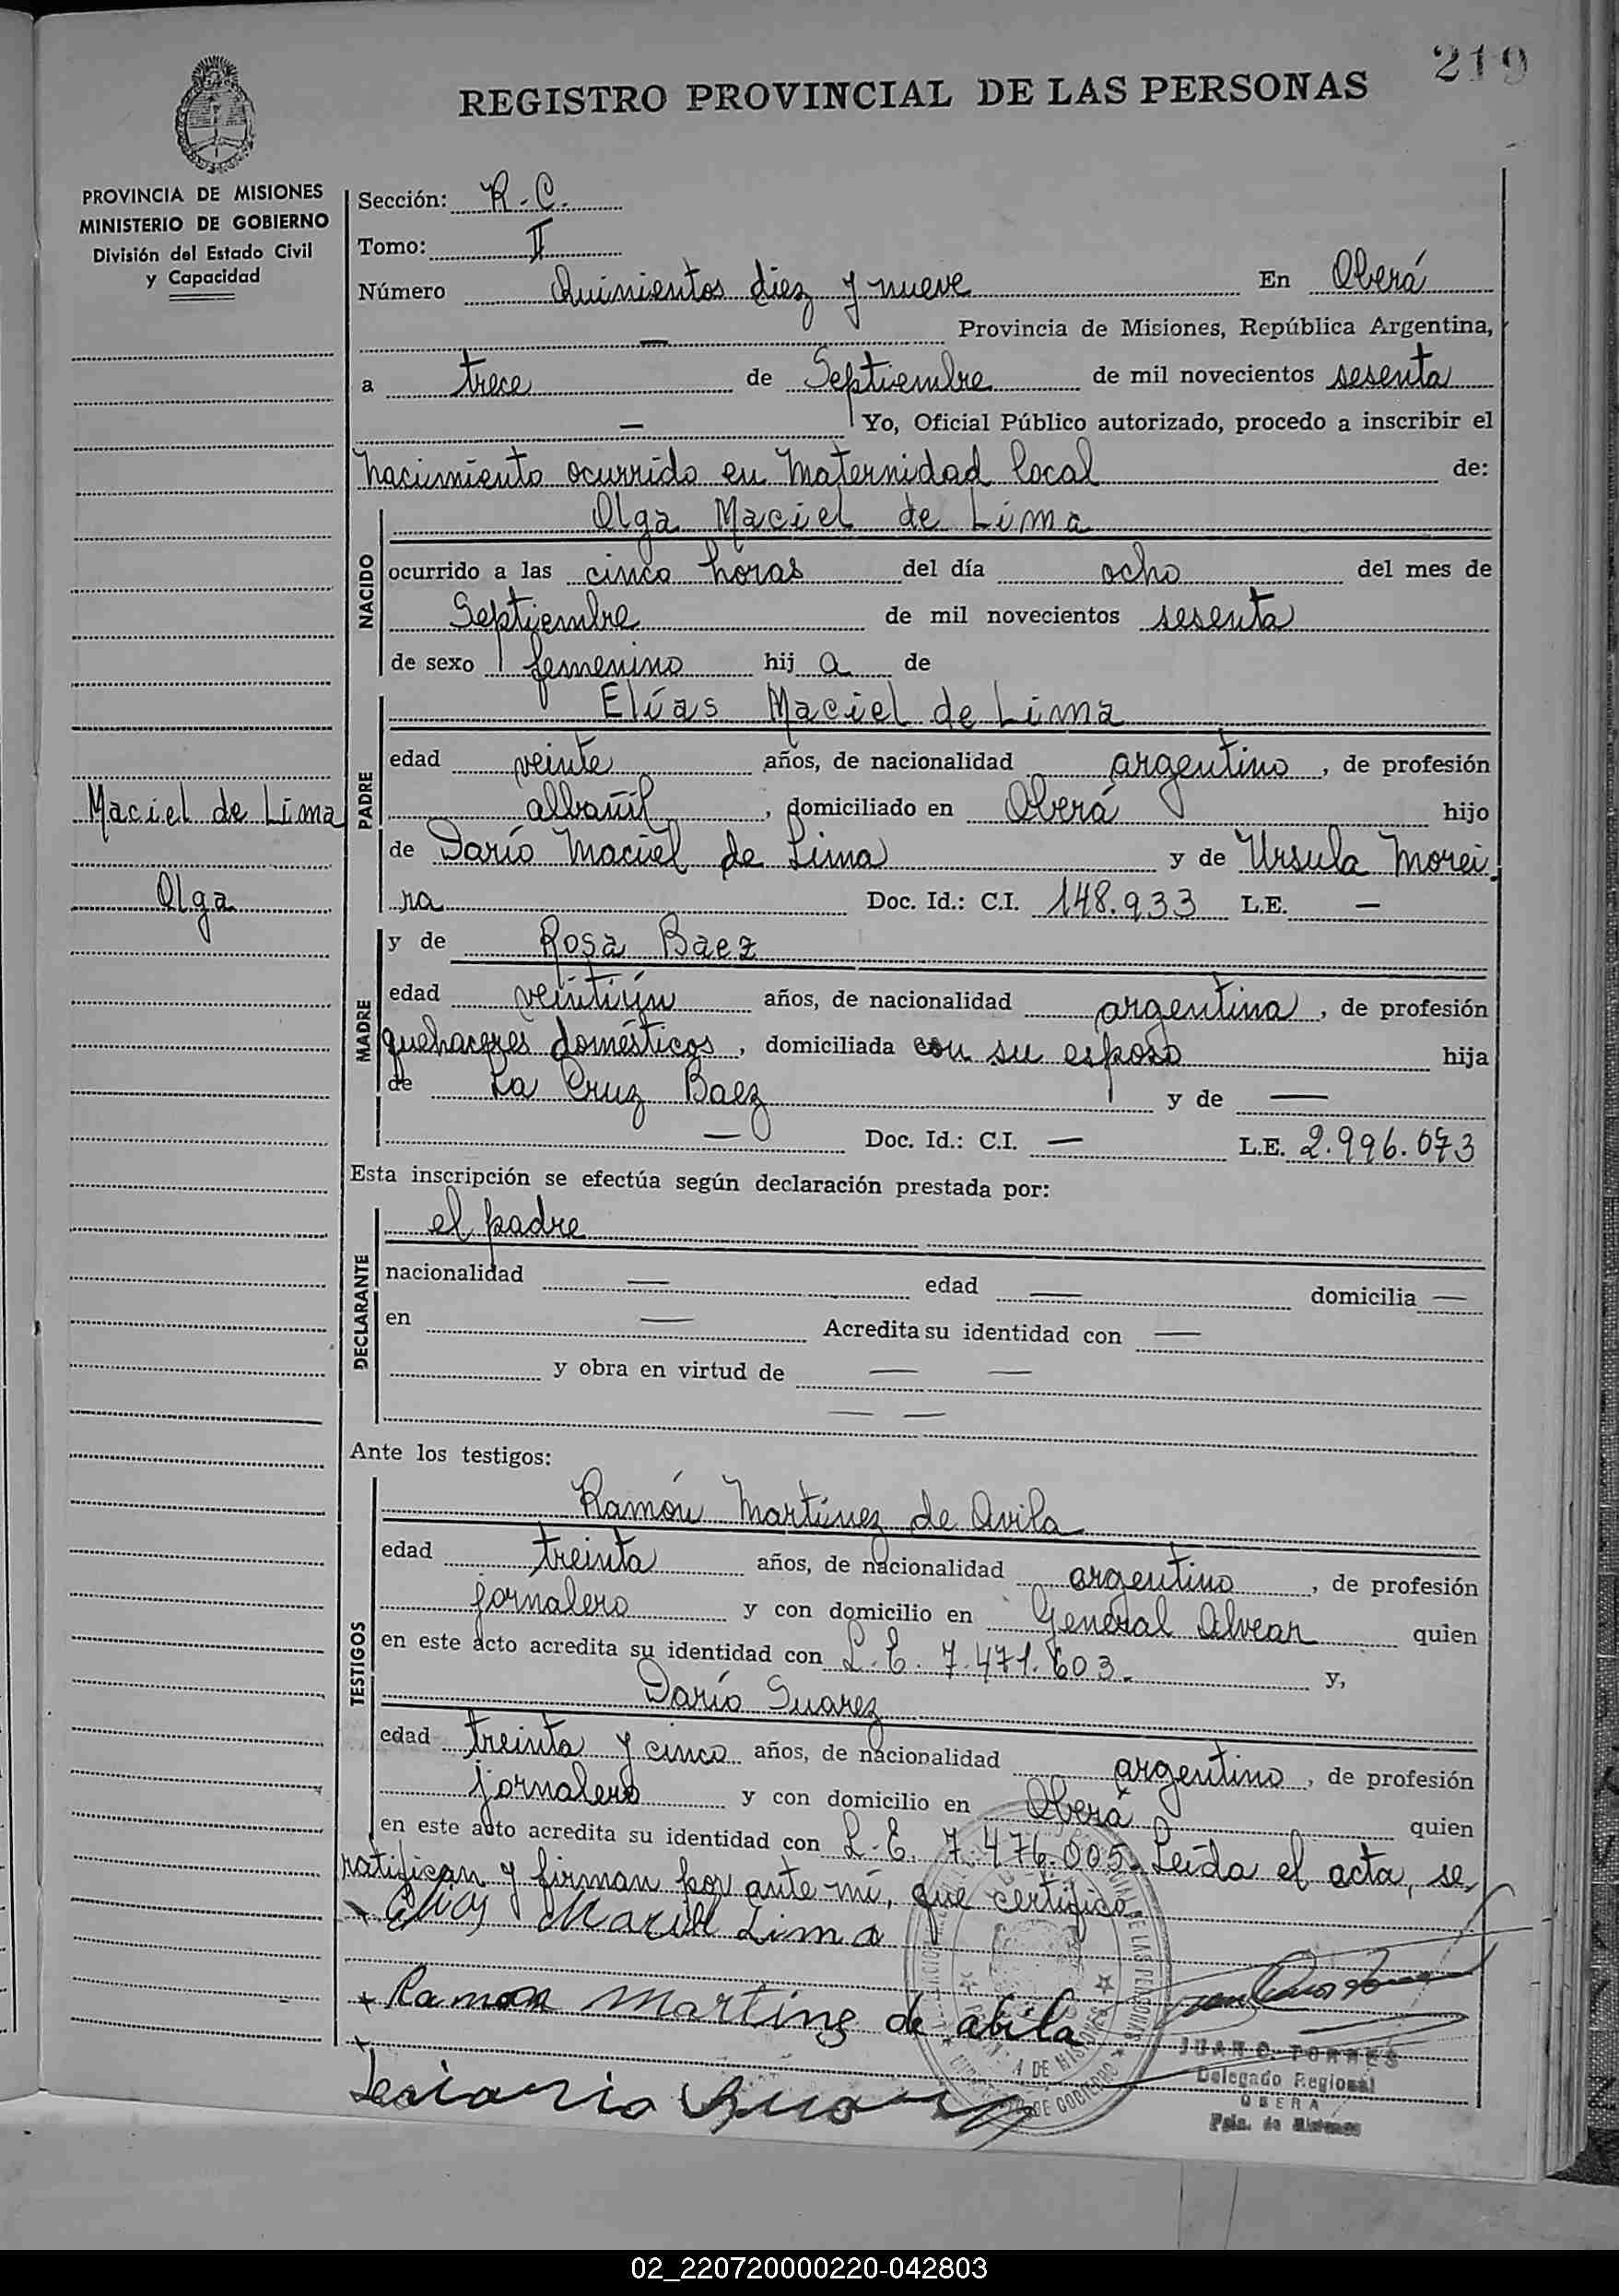 219
REGISTRO PROVINCIAL DE LAS PERSONAS
PROVINCIA DE MISIONES
MINISTERIO DE GOBIERNO
División del Estado Civil
y Capacidad
Maciel de Lima
Olga
Sección: R.C.
Tomo: II
Número Quinientos diez y nueve En Oberá
— Provincia de Misiones, República Argentina,
a trece de Septiembre de mil novecientos sesenta
— Yo, Oficial Público autorizado, procedo a inscribir el
nacimiento ocurrido en Maternidad local de:
NACIDO
Olga Maciel de Lima
ocurrido a las cinco horas del día ocho del mes de
Septiembre de mil novecientos sesenta
de sexo femenino hij a de
PADRE
Elías Maciel de Lima
edad veinte años, de nacionalidad argentino, de profesión
albañil, domiciliado en Oberá hijo
de Darío Maciel de Lima y de Ursula Morei
ra Doc. Id.: C.I. 148.933 L.E. —
MADRE
y de Rosa Baez
edad veintiún años, de nacionalidad argentina, de profesión
quehaceres domésticos, domiciliada con su esposo hija
de La Cruz Baez y de —
— Doc. Id.: C.I. — L.E. 2.996.073
Esta inscripción se efectúa según declaración prestada por:
DECLARANTE
el padre
nacionalidad — edad — domicilia —
en — Acredita su identidad con —
y obra en virtud de — —
— —
Ante los testigos:
TESTIGOS
Ramón Martínez de Avila
edad treinta años, de nacionalidad argentino, de profesión
jornalero y con domicilio en General Alvear quien
en este acto acredita su identidad con L.E. 7.471.603.- y,
Darío Suarez
edad treinta y cinco años, de nacionalidad argentino, de profesión
jornalero y con domicilio en Oberá quien
en este acto acredita su identidad con L.E. 7.476.005.- Leída el acta, se
ratifican y firman por ante mí, que certifico.
Elias Maciel Lima
Ramon Martines de abila
JUAN C. TORRES
Delegado Regional
OBERA
Pcia. de Misiones
02_220720000220-042803